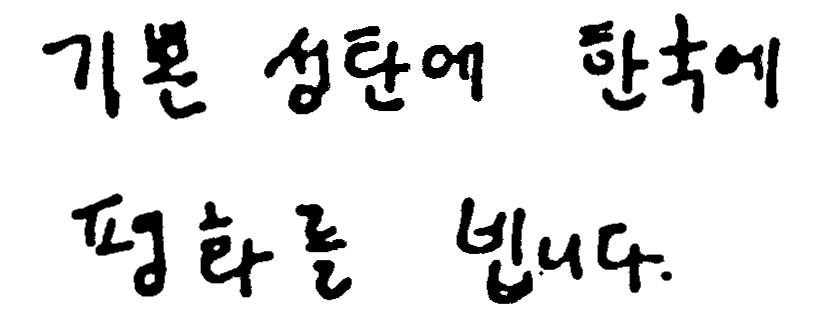 기본 성탄에 한국에
평화를 빕니다.